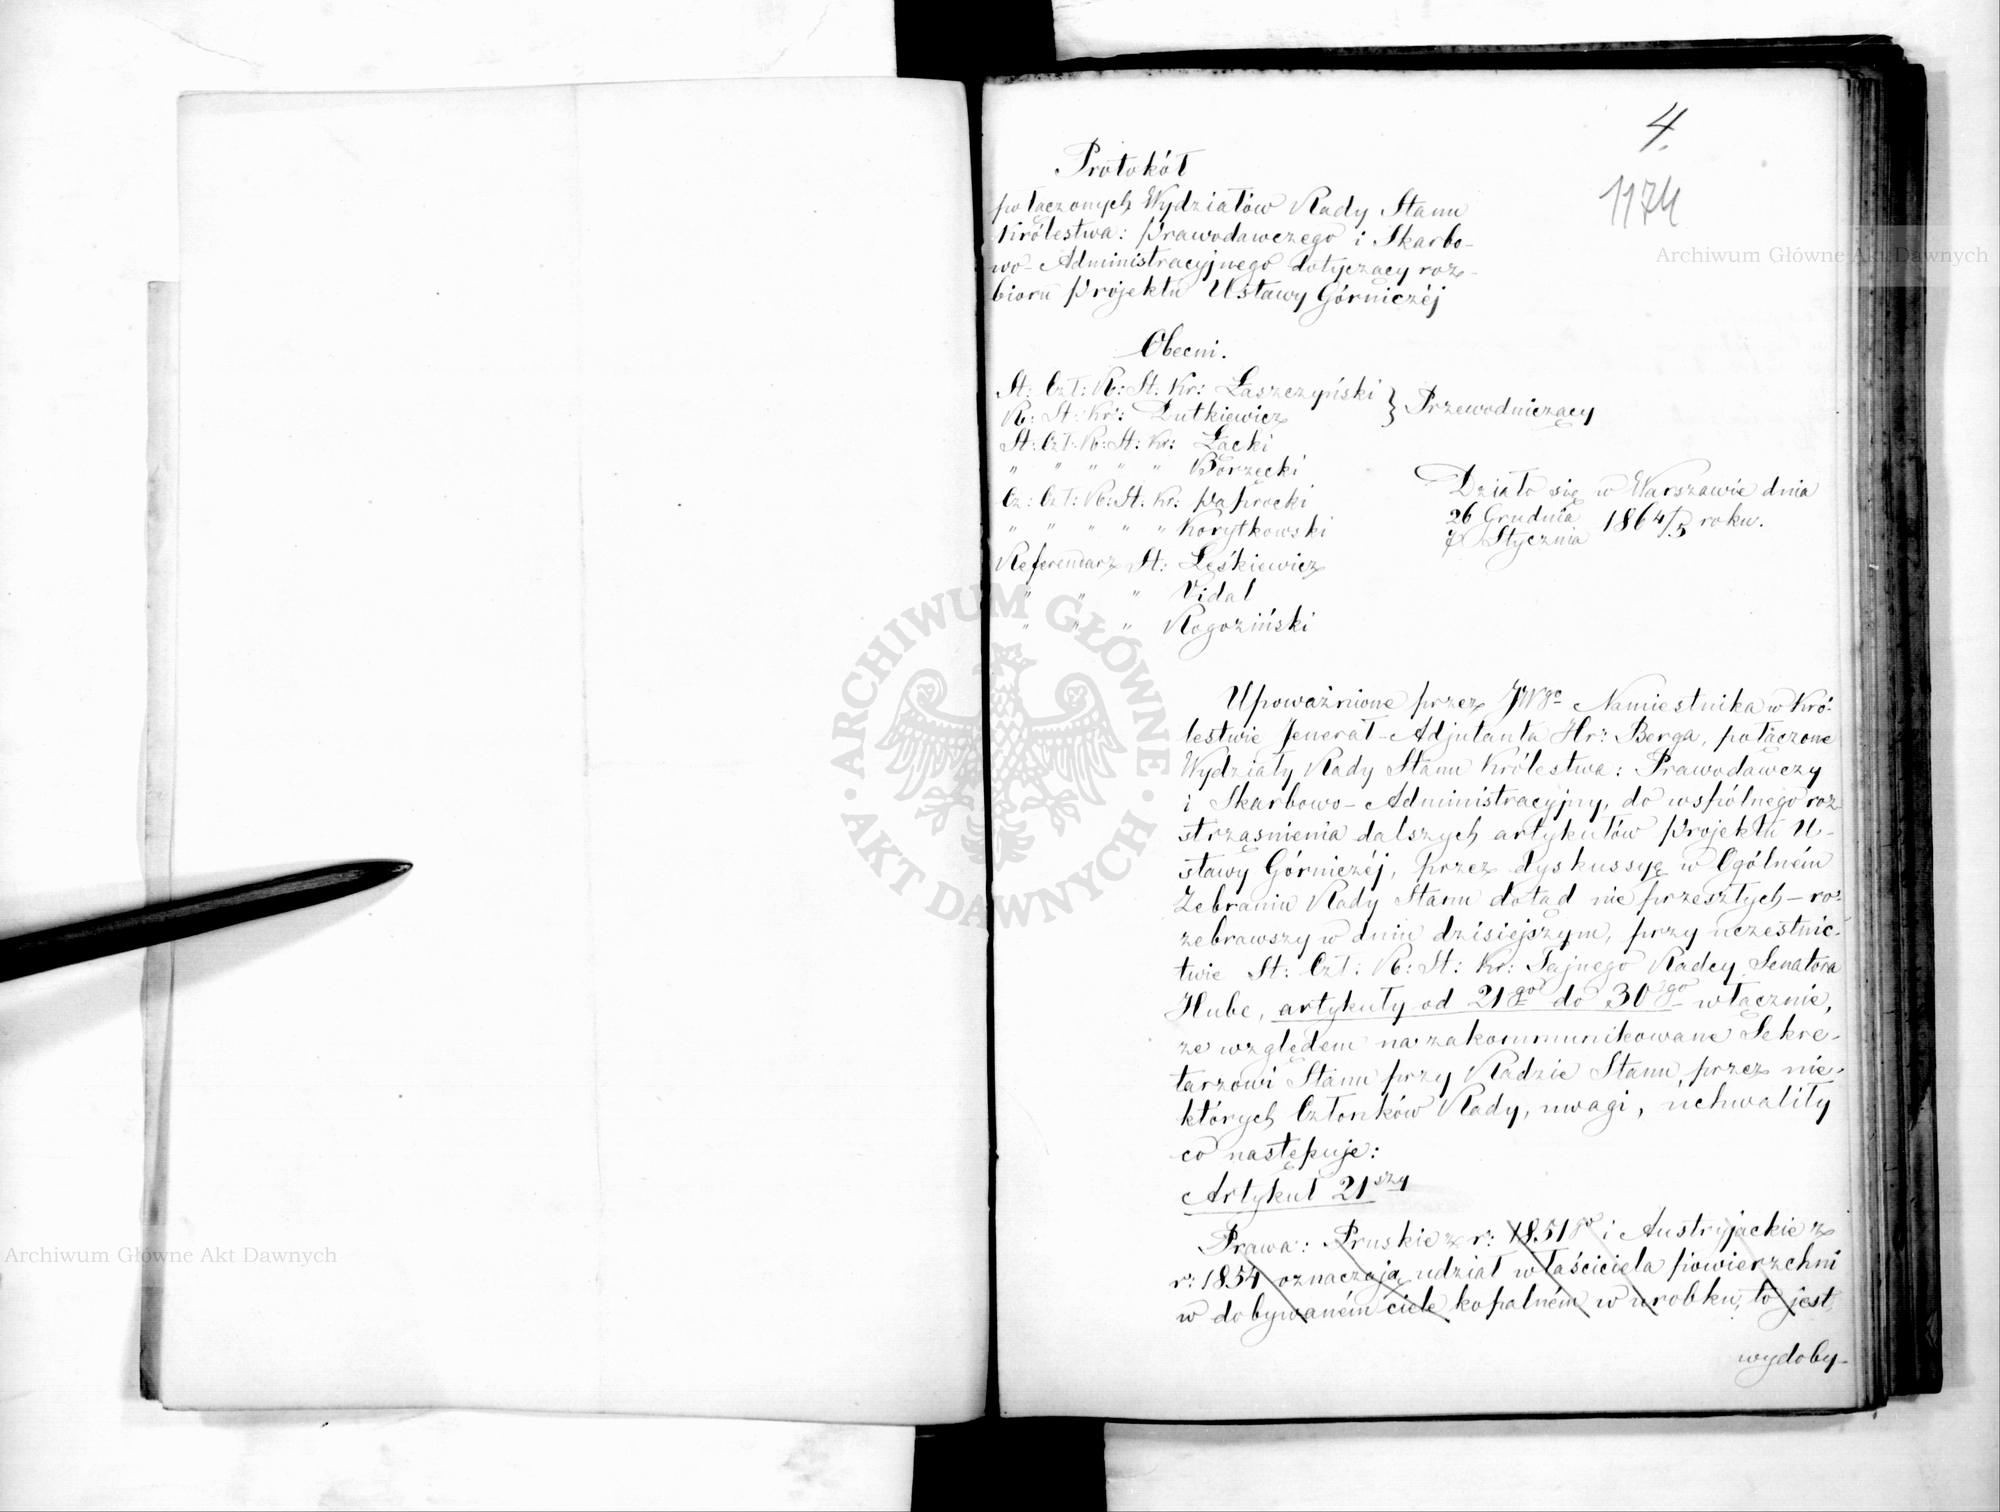 4.
1174
Protokół
połączonych Wydziałów Rady Stanu
Królestwa: Prawodawczego i Skarbo-
wo-Administracyjnego dotyczący roz-
bioru Projektu Ustawy Górniczéj
Obecni.
St: Czł: R: St: Kr: Łaszczyński } Przewodniczący
R: St: Kr: Dutkiewicz
St: Czł: R: St: Kr: Łącki
" " " " " Borzęcki
Cz: Czł: R: St: Kr: Paprocki
" " " " " Korytkowski
Referendarz St: Leśkiewicz
" " " Vidal
" " " Rogoziński
Działo się w Warszawie dnia
26 Grudnia 1864/5 roku.
7 Stycznia
Upoważnione przez JWgo Namiestnika w Kró-
lestwie Jenerał-Adjutanta Hr: Berga, połączone
Wydziały Rady Stanu Królestwa: Prawodawczy
i Skarbowo-Administracyjny, do wspólnego roz-
strząśnienia dalszych artykułów Projektu U-
stawy Górniczéj, przez dyskussyę w Ogólném
Zebraniu Rady Stanu dotąd nie przeszłych – ro-
zebrawszy w dniu dzisiejszym, przy uczestnic-
twie St: Czł: R: St: Kr: Tajnego Radcy Senatora
Hube, artykuły od 21go do 30go włącznie,
ze względem na zakommunikowane Sekre-
tarzowi Stanu przy Radzie Stanu, przez nie-
których Członków Rady, uwagi, uchwaliły
co następuje:
Artykuł 21szy
Prawa: Pruskie z r: 1851go i Austryjackie z
r: 1854 oznaczają udział właściciela powierzchni
w dobywaném ciele kopalném w urobku, to jest
wydoby-
Archiwum Główne Akt Dawnych
Archiwum Główne Akt Dawnych
ARCHIWUM GŁÓWNE
AKT DAWNYCH